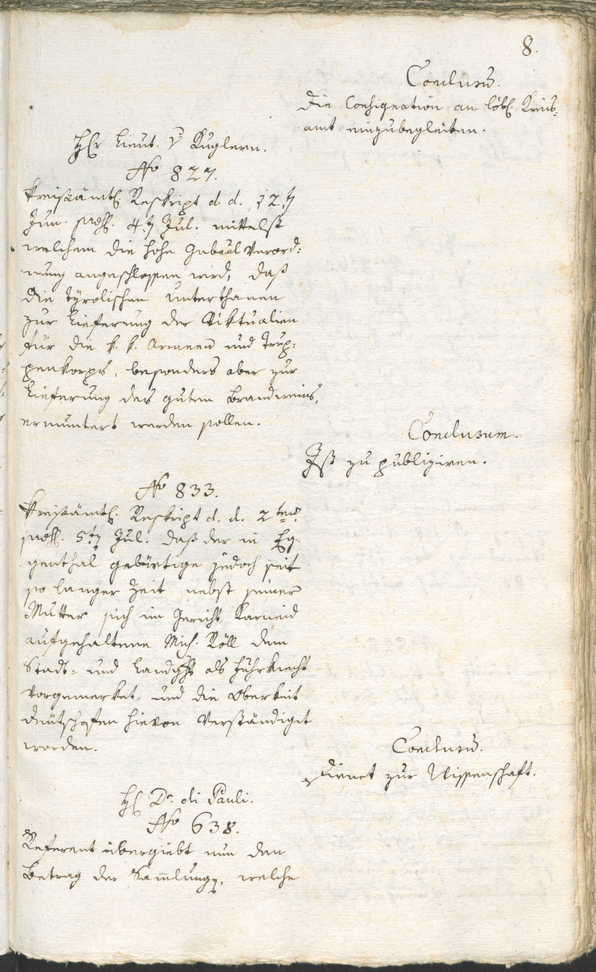 8.
Conclusum.
Die Consignation an löbl. Kreis-
amt einzubegleiten.
Hr Lieut. v Kuglern.
No 827.
Kreisämtl. Reskript d. d. 12.
Jun. präs. 4. Jul. mittelst
welchem die hohe Gubernial Verord-
nung angeschlossen wird, daß
die tyrolischen Unterthanen
zur Lieferung der Viktualien
für die k. k. Armeen und Trup-
penkorps, besonders aber zur
Lieferung des guten Brandweins,
ermuntert werden sollen.
Conclusum.
Ist zu publiziren.
No 833.
Kreisämtl. Reskript d. d. 2ten
präs. 5. Jul. daß der in Eg-
genthal gebürtige jedoch seit
so langer Zeit nebst seiner
Mutter sich im Gericht Karneid
aufgehaltene Mich. Röll dem
Stadt- und Landght als Fuhrknecht
vorgemerket, und die Obrkeit
Deutschofen hievon verständiget
worden.
Conclusum.
Dienet zur Wissenschaft.
Hr Dr. di Pauli.
No 638.
Referent übergiebt nun den
Betrag der Samlung, welche